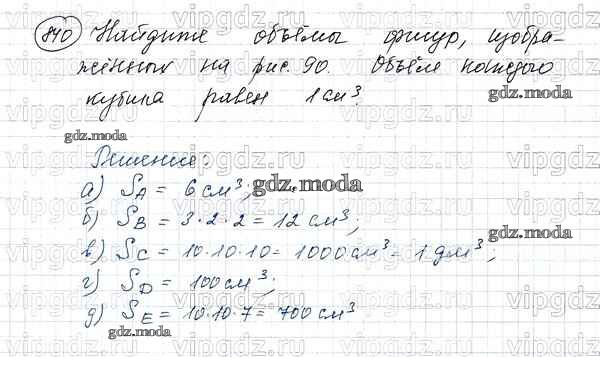 840 Найдите объёмы фигур, изобра-
женных на рис. 90. Объём каждого
кубика равен 1 см³.
gdz.moda
gdz.moda
Решение:
а) S_A = 6 см³;
gdz.moda
б) S_B = 3·2·2 = 12 см³;
в) S_C = 10·10·10 = 1000 см³ = 1 дм³;
gdz.moda
г) S_D = 100 см³;
д) S_E = 10·10·7 = 700 см³
gdz.moda
gdz.moda